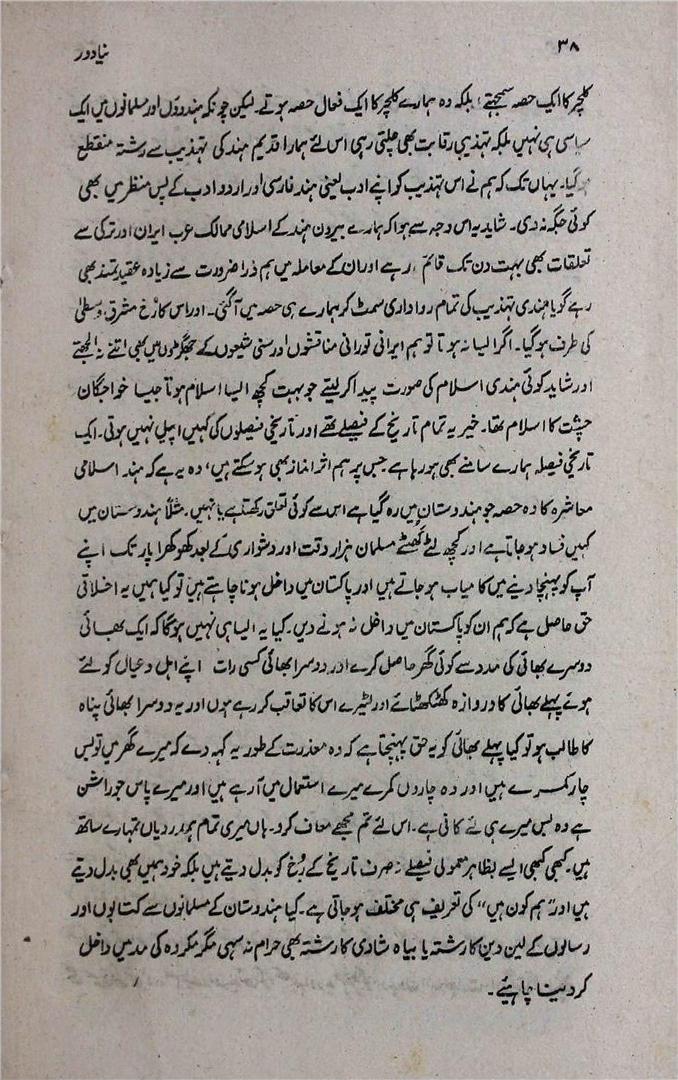 ۳۸
نیا دور
کلچر کا ایک حصہ سمجھتے؛ بلکہ وہ ہمارے کلچر کا ایک فعال حصہ ہوتے۔ لیکن چونکہ ہندوؤں اور مسلمانوں میں ایک
سیاسی ہی نہیں بلکہ تہذیبی رقابت بھی چلتی رہی اس لئے ہمارا قدیم ہند کی تہذیب سے رشتہ منقطع
ہو گیا۔ یہاں تک کہ ہم نے اس تہذیب کو اپنے ادب یعنی ہند فارسی اور اردو ادب کے پس منظر میں بھی
کوئی جگہ نہ دی۔ شاید یہ اس وجہ سے ہوا کہ ہمارے بیرون ہند کے اسلامی ممالک عرب ایران اور ترکی سے
تعلقات بھی بہت دن تک قائم رہے اور ان کے معاملہ میں ہم ذرا ضرورت سے زیادہ عقیدتمند بھی
رہے گویا ہندی تہذیب کی تمام رواداری سمٹ کر ہمارے ہی حصہ میں آ گئی۔ اور اس کا رُخ مشرق وسطیٰ
کی طرف ہو گیا۔ اگر ایسا نہ ہوتا تو ہم ایرانی تورانی مناقشوں اور سنی شیعوں کے جھگڑوں میں بھی اتنے نہ الجھتے
اور شاید کوئی ہندی اسلام کی صورت پیدا کر لیتے جو بہت کچھ ایسا اسلام ہوتا جیسا خواجگان
چشت کا اسلام تھا۔ خیر یہ تمام تاریخ کے فیصلے تھے اور تاریخی فیصلوں کی کہیں اپیل نہیں ہوتی۔ ایک
تاریخی فیصلہ ہمارے سامنے بھی ہو رہا ہے جس پر ہم اثر انداز بھی ہو سکتے ہیں، وہ یہ ہے کہ ہند اسلامی
معاشرہ کا وہ حصہ جو ہندوستان میں رہ گیا ہے اس سے کوئی تعلق رکھتا ہے یا نہیں۔ مثلاً ہندوستان میں
کہیں فساد ہو جاتا ہے اور کچھ لٹے کھسٹے مسلمان ہزار دقت اور دشواری کے بعد کھوکھرا پار تک اپنے
آپ کو پہنچا دینے میں کامیاب ہو جاتے ہیں اور پاکستان میں داخل ہونا چاہتے ہیں تو کیا ہمیں یہ اخلاقی
حق حاصل ہے کہ ہم ان کو پاکستان میں داخل نہ ہونے دیں۔ کیا یہ ایسا ہی نہیں ہو گا کہ ایک بھائی
دوسرے بھائی کی مدد سے کوئی گھر حاصل کرے اور دوسرا بھائی کسی رات اپنے اہل و عیال کو لئے
ہوئے پہلے بھائی کا دروازہ کھٹکھٹائے اور لٹیرے اس کا تعاقب کر رہے ہوں اور یہ دوسرا بھائی پناہ
کا طالب ہو تو کیا پہلے بھائی کو یہ حق پہنچتا ہے کہ وہ معذرت کے طور یہ کہہ دے کہ میرے گھر میں تو بس
چار کمرے ہیں اور وہ چاروں کمرے میرے استعمال میں آ رہے ہیں اور میرے پاس جو راشن
ہے وہ بس میرے ہی لئے کافی ہے۔ اس لئے تم مجھے معاف کرو۔ ہاں میری تمام ہمدردیاں تمہارے ساتھ
ہیں۔ کبھی کبھی ایسے بظاہر معمولی فیصلے نہ صرف تاریخ کے رُخ کو بدل دیتے ہیں بلکہ خود ہمیں بھی بدل دیتے
ہیں اور ”ہم کون ہیں“ کی تعریف ہی مختلف ہو جاتی ہے۔ کیا ہندوستان کے مسلمانوں سے کتابوں اور
رسالوں کے لین دین کا رشتہ یا بیاہ شادی کا رشتہ بھی حرام نہ سہی مگر مکروہ کی مد میں داخل
کر دینا چاہیئے۔